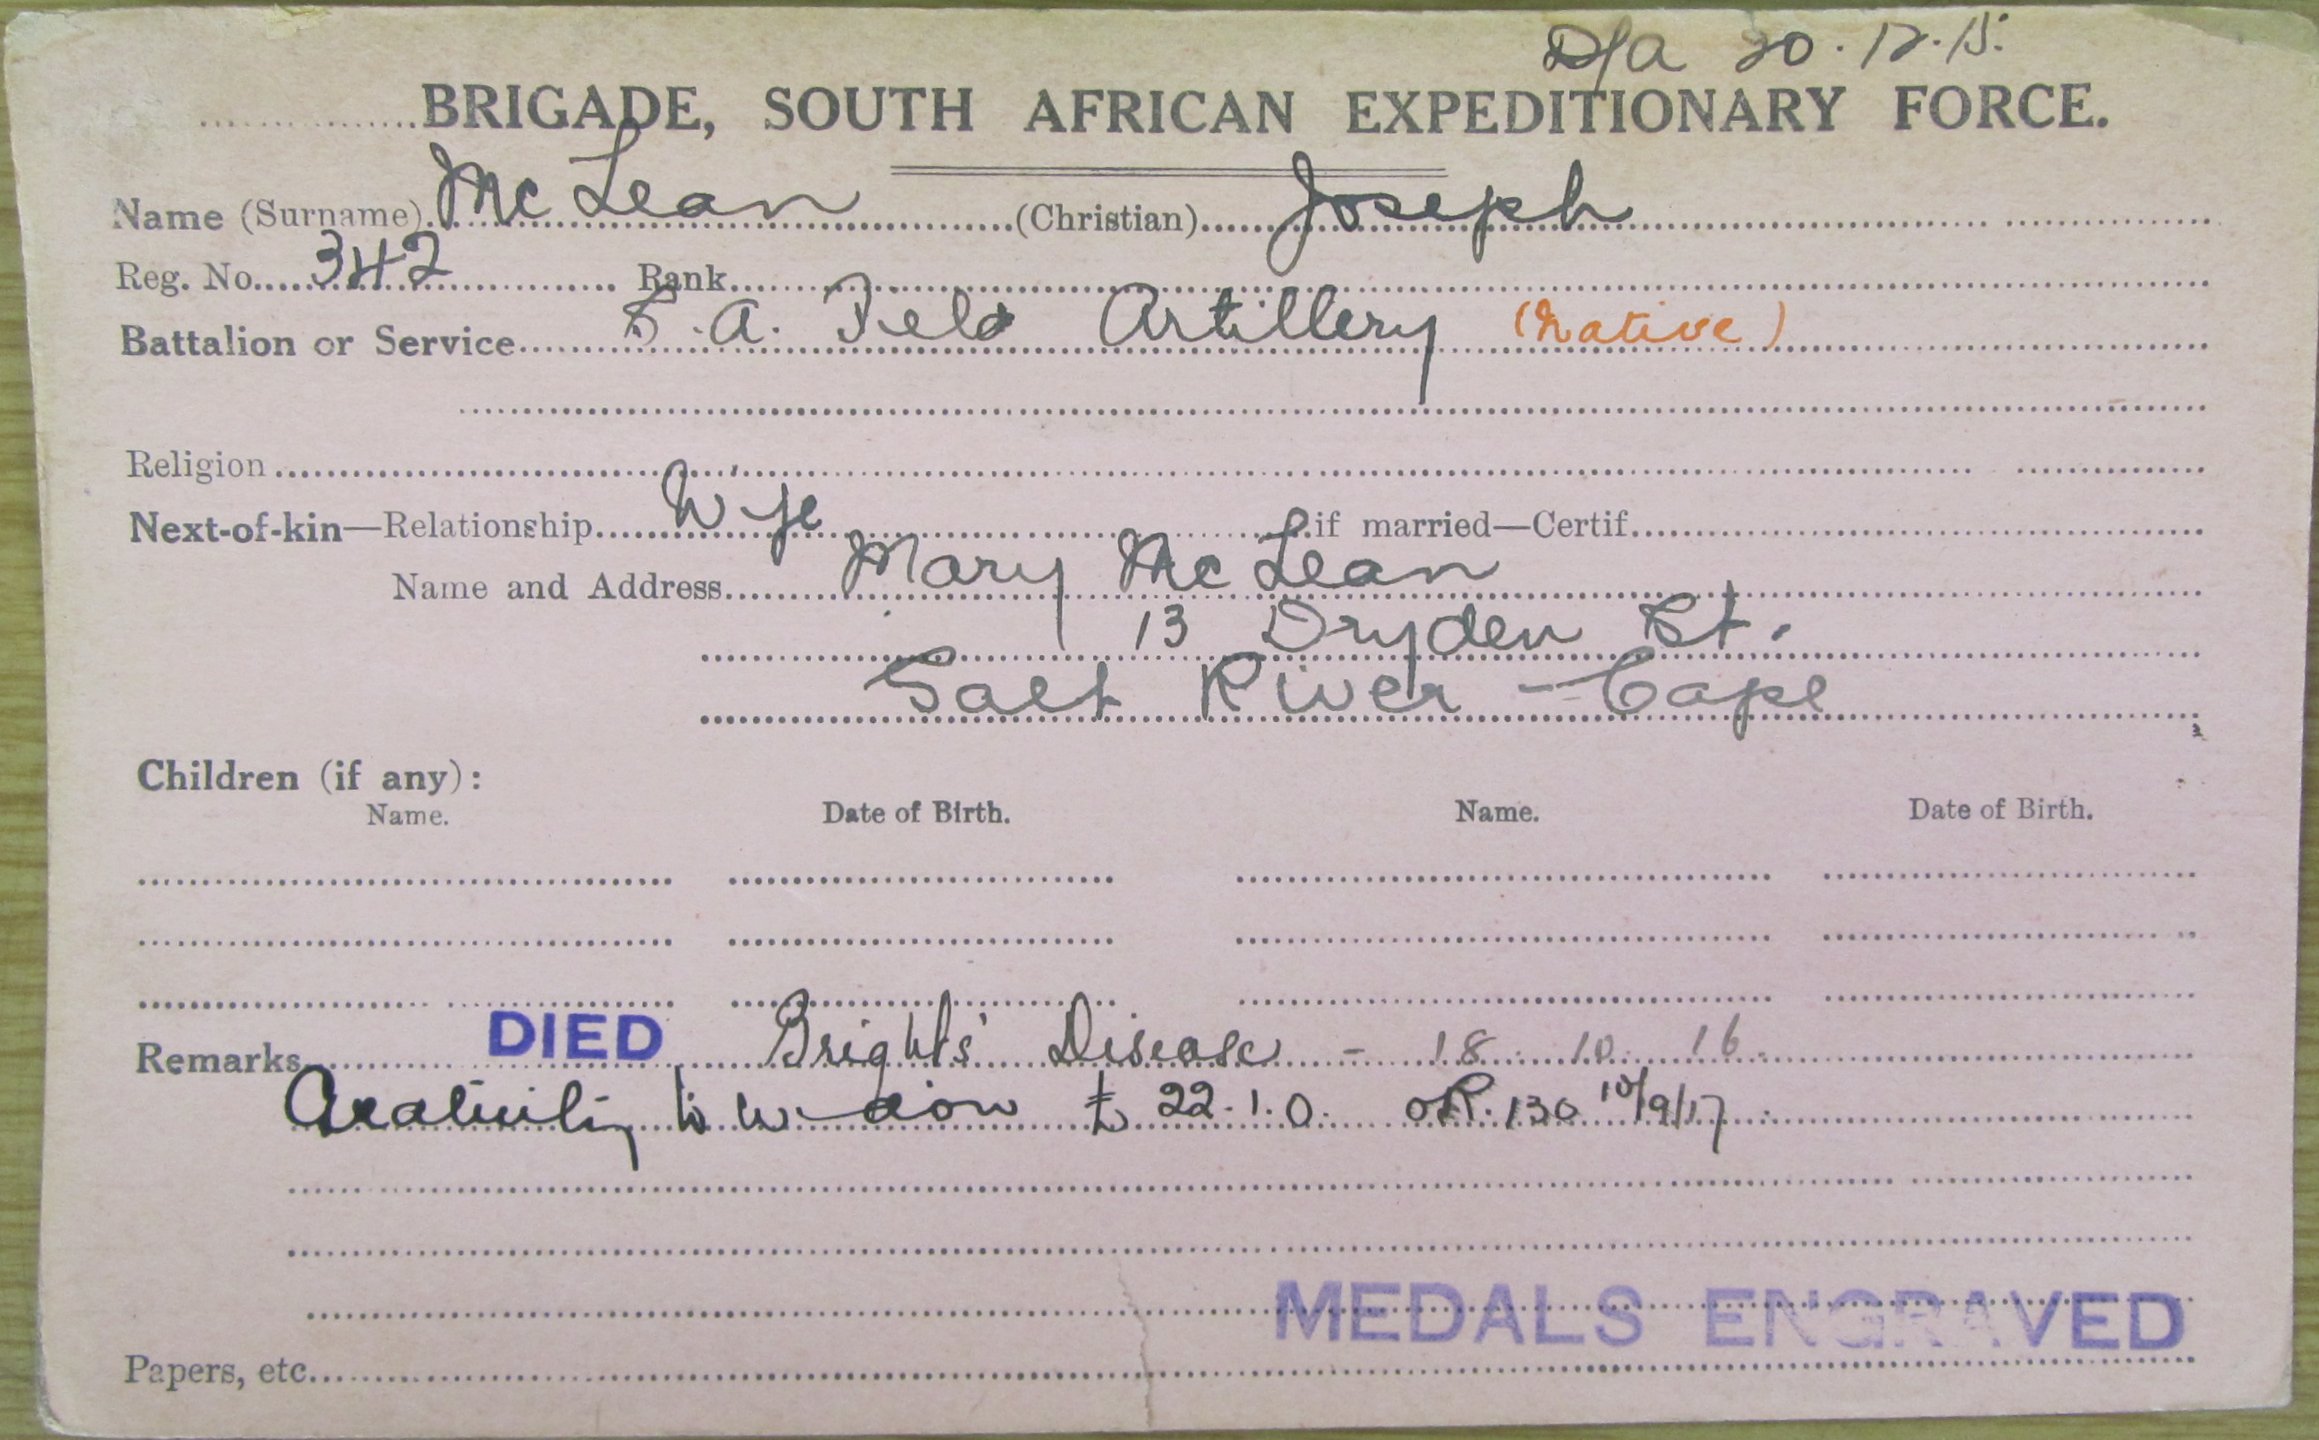 D/A 20.12.15.
BRIGADE, SOUTH AFRICAN EXPEDITIONARY FORCE.
Name (Surname) McLean (Christian) Joseph
Reg. No. 342 Rank
Battalion or Service S.A. Field Artillery (Native)
Religion
Next-of-kin—Relationship Wife if married—Certif.
Name and Address Mary McLean
13 Dryden St.
Salt River - Cape
Children (if any):
Name. Date of Birth. Name. Date of Birth.
Remarks DIED Bright's Disease - 18.10.16.
Gratuity to widow £22.1.0. OR.130 10/9/17.
MEDALS ENGRAVED
Papers, etc.